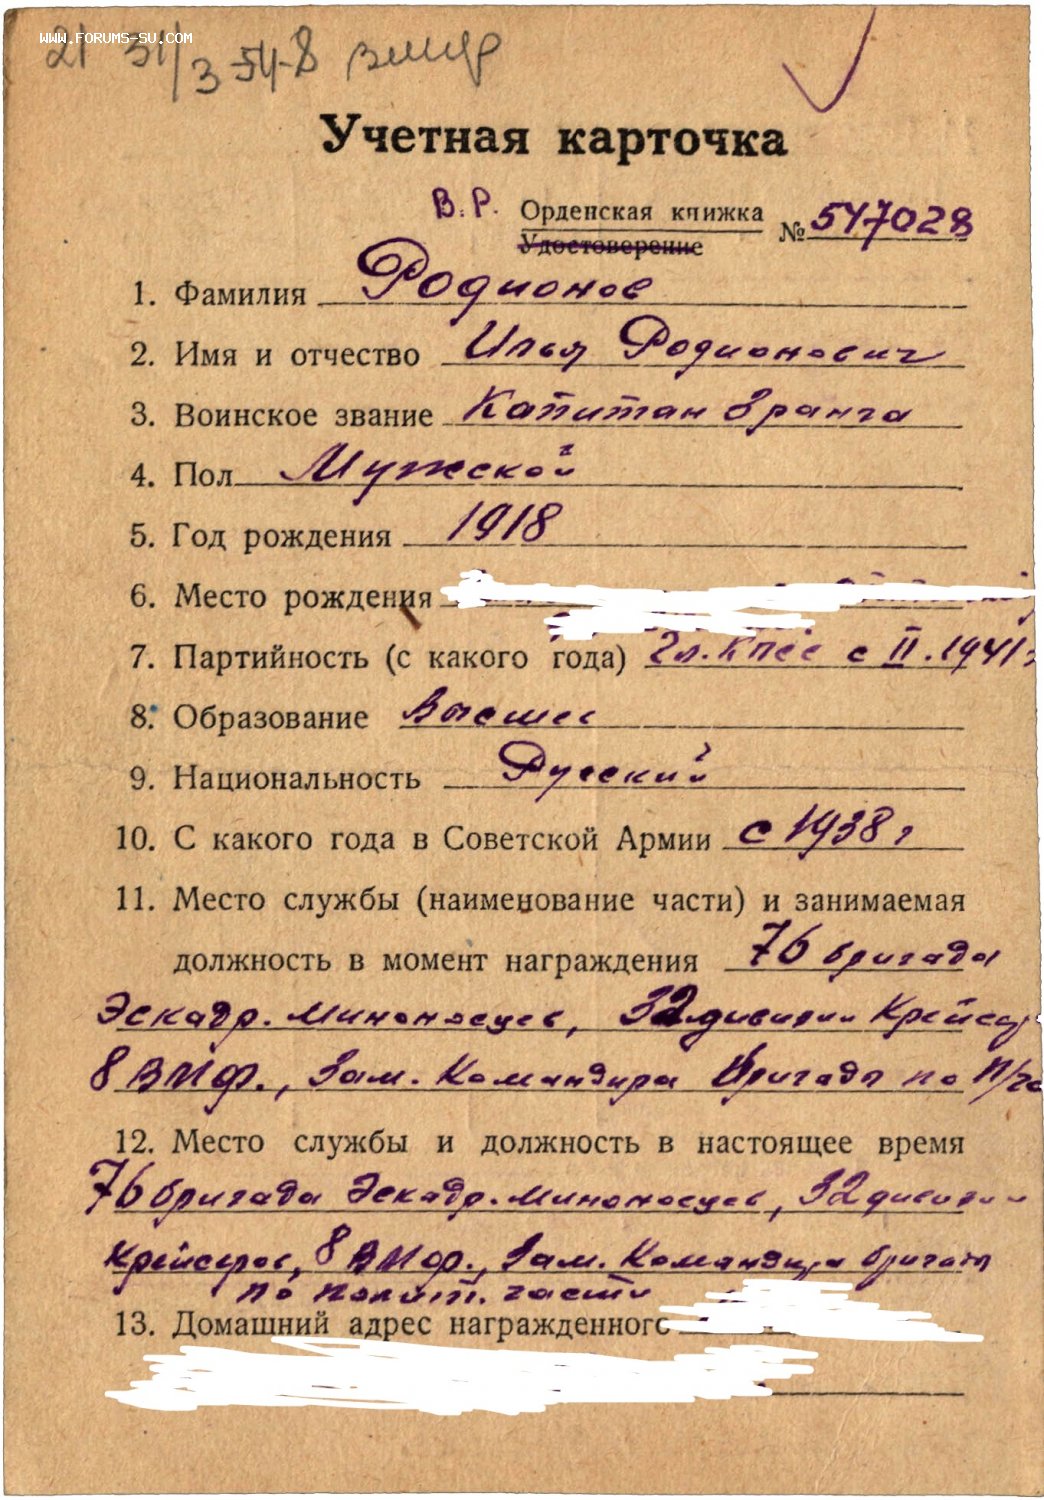 WWW.FORUMS-SU.COM
21 31/3-54-8
Учетная карточка
В.Р. Орденская книжка
Удостоверение № 547028
1. Фамилия Родионов
2. Имя и отчество Илья Родионович
3. Воинское звание Капитан 3 ранга
4. Пол Мужской
5. Год рождения 1918
6. Место рождения
7. Партийность (с какого года) Чл. КПСС с II. 1941 г
8. Образование Высшее
9. Национальность Русский
10. С какого года в Советской Армии с 1938 г
11. Место службы (наименование части) и занимаемая
должность в момент награждения 76 бригада
Эскадр. Миноносцев, 32 дивизии Крейсер
8 ВМФ., Зам. Командира бригады по п/ча
12. Место службы и должность в настоящее время
76 бригада Эскадр. Миноносцев, 32 дивизии
Крейсеров, 8 ВМФ., Зам. Командира бригады
по полит. части
13. Домашний адрес награжденного